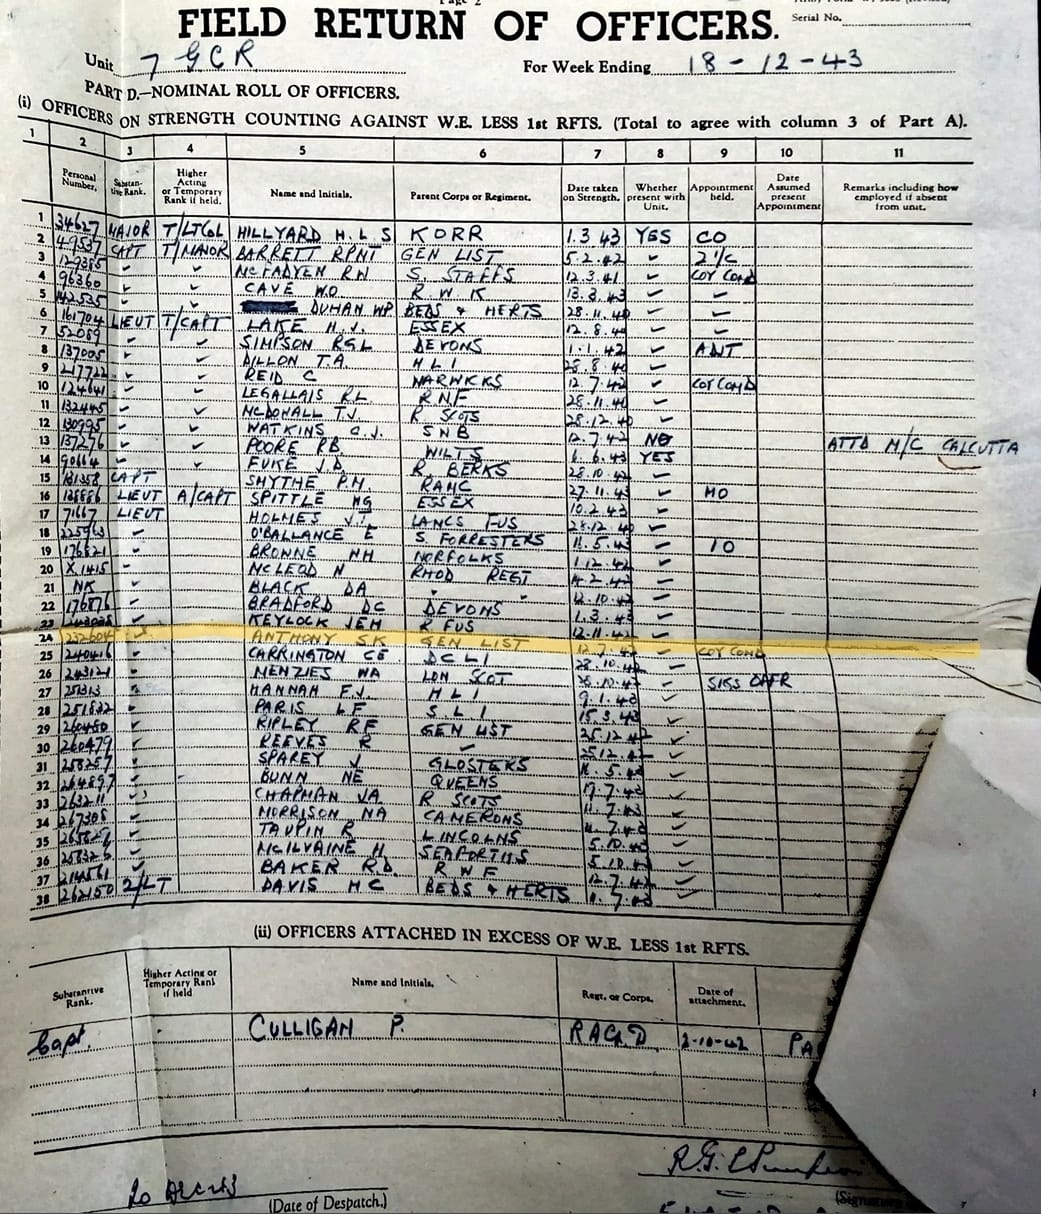 Page 2
FIELD RETURN OF OFFICERS.
Serial No.
Unit 7 GCR
For Week Ending 18-12-43
PART D.—NOMINAL ROLL OF OFFICERS.
(i) OFFICERS ON STRENGTH COUNTING AGAINST W.E. LESS 1st RFTS. (Total to agree with column 3 of Part A).
1 2 3 4 5 6 7 8 9 10 11
Personal Number. Substantive Rank. Higher Acting or Temporary Rank if held. Name and Initials. Parent Corps or Regiment. Date taken on Strength. Whether present with Unit. Appointment held. Date Assumed present Appointment Remarks including how employed if absent from unit.
1 34627 MAJOR T/LTCOL HILLYARD H.L.S KORR 1.3.43 YES CO
2 49537 CAPT T/MAJOR BARRETT RPNT GEN LIST 5.2.42 " 2i/c
3 129385 " " MCFADYEN RN S. STAFFS 12.3.41 " COY COMD
4 96360 " " CAVE W.O R W K 13.3.43 " "
5 142535 " " DUHAN WP BEDS & HERTS 28.11.40 " "
6 161704 LIEUT T/CAPT LAKE H.J. ESSEX 12.8.40 " "
7 52089 " " SIMPSON RGL DEVONS 1.1.42 " ADJT
8 137005 " " DILLON T.A. H L I 28.8.40 "
9 217722 " " REID C WARWICKS 12.7.42 " COY COMD
10 124641 " " LEGALLAIS RL R N F 28.11.40 "
11 132445 " " MCDOWALL T.J. R SCOTS 28.12.40 "
12 130995 " " WATKINS C.J. S N B 12.7.42 NO ATTD M/C CALCUTTA
13 137276 " " POORE RB WILTS 6.6.43 YES
14 90664 " " FUKE J.D. R. BERKS 28.10.42 "
15 181358 CAPT SMYTHE P.H. RAMC 27.11.43 " MO
16 138886 LIEUT A/CAPT SPITTLE MG ESSEX 10.2.43 "
17 71667 LIEUT HOLMES LANCS FUS 28.12.40 "
18 " O'BALLANCE E S. FORRESTERS 11.5.43 " IO
19 176821 " BRONNE NH NORFOLKS 1.12.42 "
20 X.1415 " MCLEOD N RHOD REGT "
21 NK " BLACK DA " " 12.10.42 "
22 176876 " BRADFORD DC DEVONS 1.3.43 "
23 " KEYLOCK JEH R FUS 12.11.42 "
24 232604 " ANTHONY SK GEN LIST 12.7.42 " COY COMD
25 240416 " CARRINGTON CE DCLI 28.10.42
26 243121 " MENZIES WA LDN SCOT 28.10.42 " SIGS OFFR
27 " HANNAH F.J. H L I 9.1.43 "
28 251832 " PARIS LF S L I 15.3.43 "
29 260480 " RIPLEY RF GEN LIST 25.12.42 "
30 260479 " REEVES R " 25.12.42 "
31 258257 " SPAREY J GLOSTERS "
32 264897 " BUNN NE QUEENS 17.7.43 "
33 263211 " CHAPMAN JA R SCOTS 11.7.43 "
34 267308 " MORRISON NA CAMERONS "
35 " TAUPIN R LINCOLNS 5.10.43 "
36 " MCILVAINE H SEAFORTHS 5.10.43 "
37 214561 " BAKER R.D. R W F 12.7.42 "
38 262150 2/LT DAVIS HC BEDS & HERTS "
(ii) OFFICERS ATTACHED IN EXCESS OF W.E. LESS 1st RFTS.
Substantive Rank. Higher Acting or Temporary Rank if held Name and Initials. Regt. or Corps. Date of attachment.
Capt. CULLIGAN P. 2-10-42 PA
(Date of Despatch.)